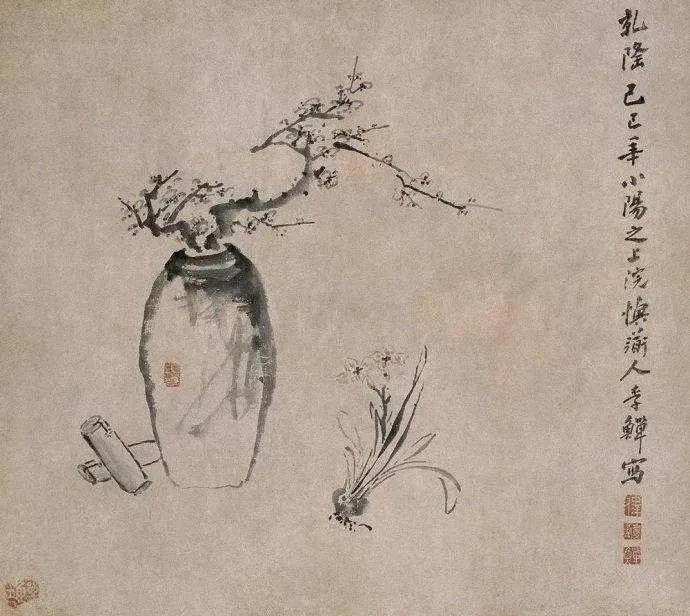 乾隆己巳年小陽之上浣懊道人李鱓寫